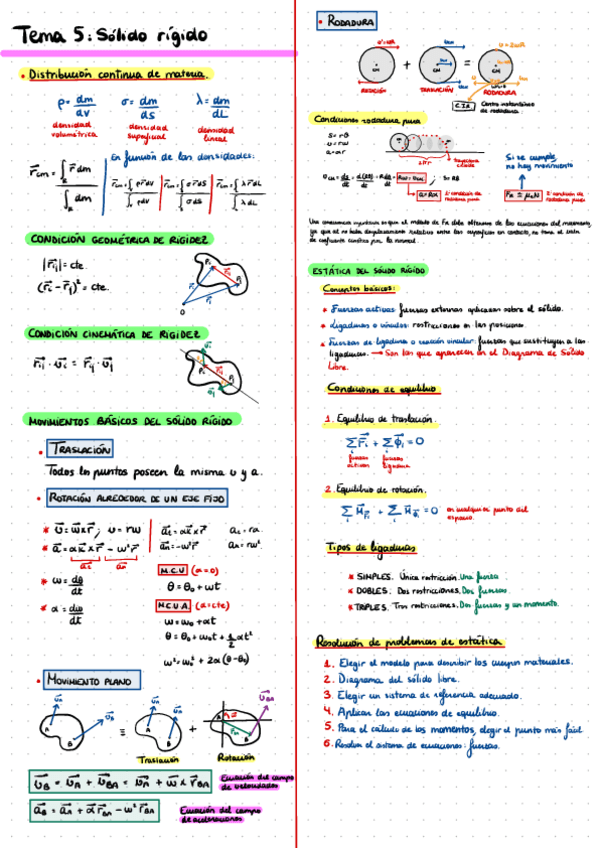 Tema 5: Sólido rígido
• Distribución continua de materia.
ρ = dm/dV σ = dm/dS λ = dm/dL
densidad volumétrica densidad superficial densidad lineal
En función de las densidades:
r⃗cm = ∫ r⃗ dm / ∫ dm
r⃗cm = ∫ r⃗ρdV / ∫ ρdV r⃗cm = ∫ r⃗σdS / ∫ σdS r⃗cm = ∫ r⃗λdL / ∫ λdL
CONDICIÓN GEOMÉTRICA DE RIGIDEZ
|r⃗ij| = cte.
(r⃗i - r⃗j)² = cte.
CONDICIÓN CINEMÁTICA DE RIGIDEZ
r⃗ij · v⃗i = r⃗ij · v⃗j
MOVIMIENTOS BÁSICOS DEL SÓLIDO RÍGIDO
• TRASLACIÓN
Todos los puntos poseen la misma v y a.
• ROTACIÓN ALREDEDOR DE UN EJE FIJO
* v⃗ = w⃗ x r⃗ ; v = rw
a⃗t = αk⃗ x r⃗ at = rα
* a⃗ = αk⃗ x r⃗ - w² r⃗
a⃗n = -w² r⃗ an = rw²
a⃗t a⃗n
* w = dθ/dt
M.C.U (α = 0)
θ = θ₀ + wt
* α = dw/dt
M.C.U.A. (α = cte)
w = w₀ + αt
θ = θ₀ + w₀t + 1/2 αt²
w² = w₀² + 2α (θ-θ₀)
• MOVIMIENTO PLANO
A B v⃗A v⃗B ≡ A B v⃗A + A B v⃗BA
Traslación Rotación
v⃗B = v⃗A + v⃗BA = v⃗A + w⃗ x r⃗BA Ecuación del campo de velocidades
a⃗B = a⃗A + α⃗ r⃗BA - w² r⃗BA Ecuación del campo de aceleraciones
• RODADURA
CM + CM = CM
ROTACIÓN TRASLACIÓN RODADURA
C.I.R Centro instantáneo de rodadura.
Condiciones rodadura pura
S = rθ
v = rw
a = αr
2πr trayectoria
Si se cumple, no hay movimiento
a = Rα 1ª condición de rodadura pura
FR ≤ μeN 2ª condición de rodadura pura
ESTÁTICA DEL SÓLIDO RÍGIDO
Conceptos básicos:
* Fuerzas activas: fuerzas externas aplicadas sobre el sólido.
* Ligaduras o vínculos: restricciones en las posiciones.
* Fuerzas de ligadura o reacción vincular: fuerzas que sustituyen a las
ligaduras. → Son las que aparecen en el Diagrama de Sólido
Libre.
Condiciones de equilibrio
1. Equilibrio de traslación.
∑ F⃗i + ∑ Φ⃗i = 0
fuerzas activas fuerzas ligadura
2. Equilibrio de rotación.
∑ M⃗Fi + ∑ M⃗Φi = 0 en cualquier punto del espacio.
Tipos de ligaduras
* SIMPLES. Única restricción. Una fuerza.
* DOBLES. Dos restricciones. Dos fuerzas
* TRIPLES. Tres restricciones. Dos fuerzas y un momento.
Resolución de problemas de estática
1. Elegir el modelo para describir los cuerpos materiales.
2. Diagrama del sólido libre.
3. Elegir un sistema de referencia adecuado.
4. Aplicar las ecuaciones de equilibrio.
5. Para el cálculo de los momentos, elegir el punto más fácil
6. Resolver el sistema de ecuaciones: fuerzas.